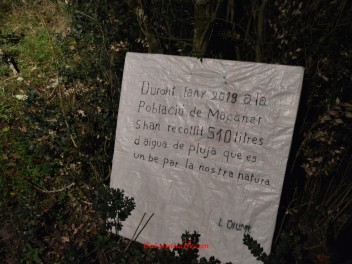 Duront lany 2019 a la
Població de Maçanet
S'han recollit 510 litres
d'aigua de pluja que es
un be par la nostra natura